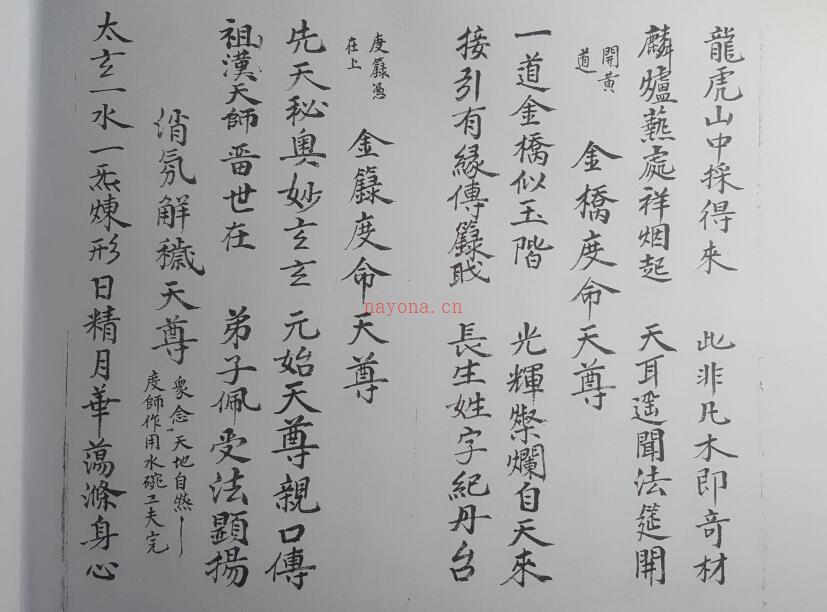 龍虎山中採得來 此非凡木即奇材
麟爐爇處祥烟起 天耳遥聞法筵開
開黃道 金橋度命天尊
一道金橋似玉階 光輝燦爛自天來
接引有緣傳籙職 長生姓字紀丹台
度籙憑在上 金籙度命天尊
先天秘奥妙玄玄 元始天尊親口傳
祖漢天師晋世在 弟子佩受法顕揚
消氛解穢天尊 衆念天地自然
度師作用水碗工夫完
太玄一水一炁煉形日精月華蕩滌身心
nayona.cn